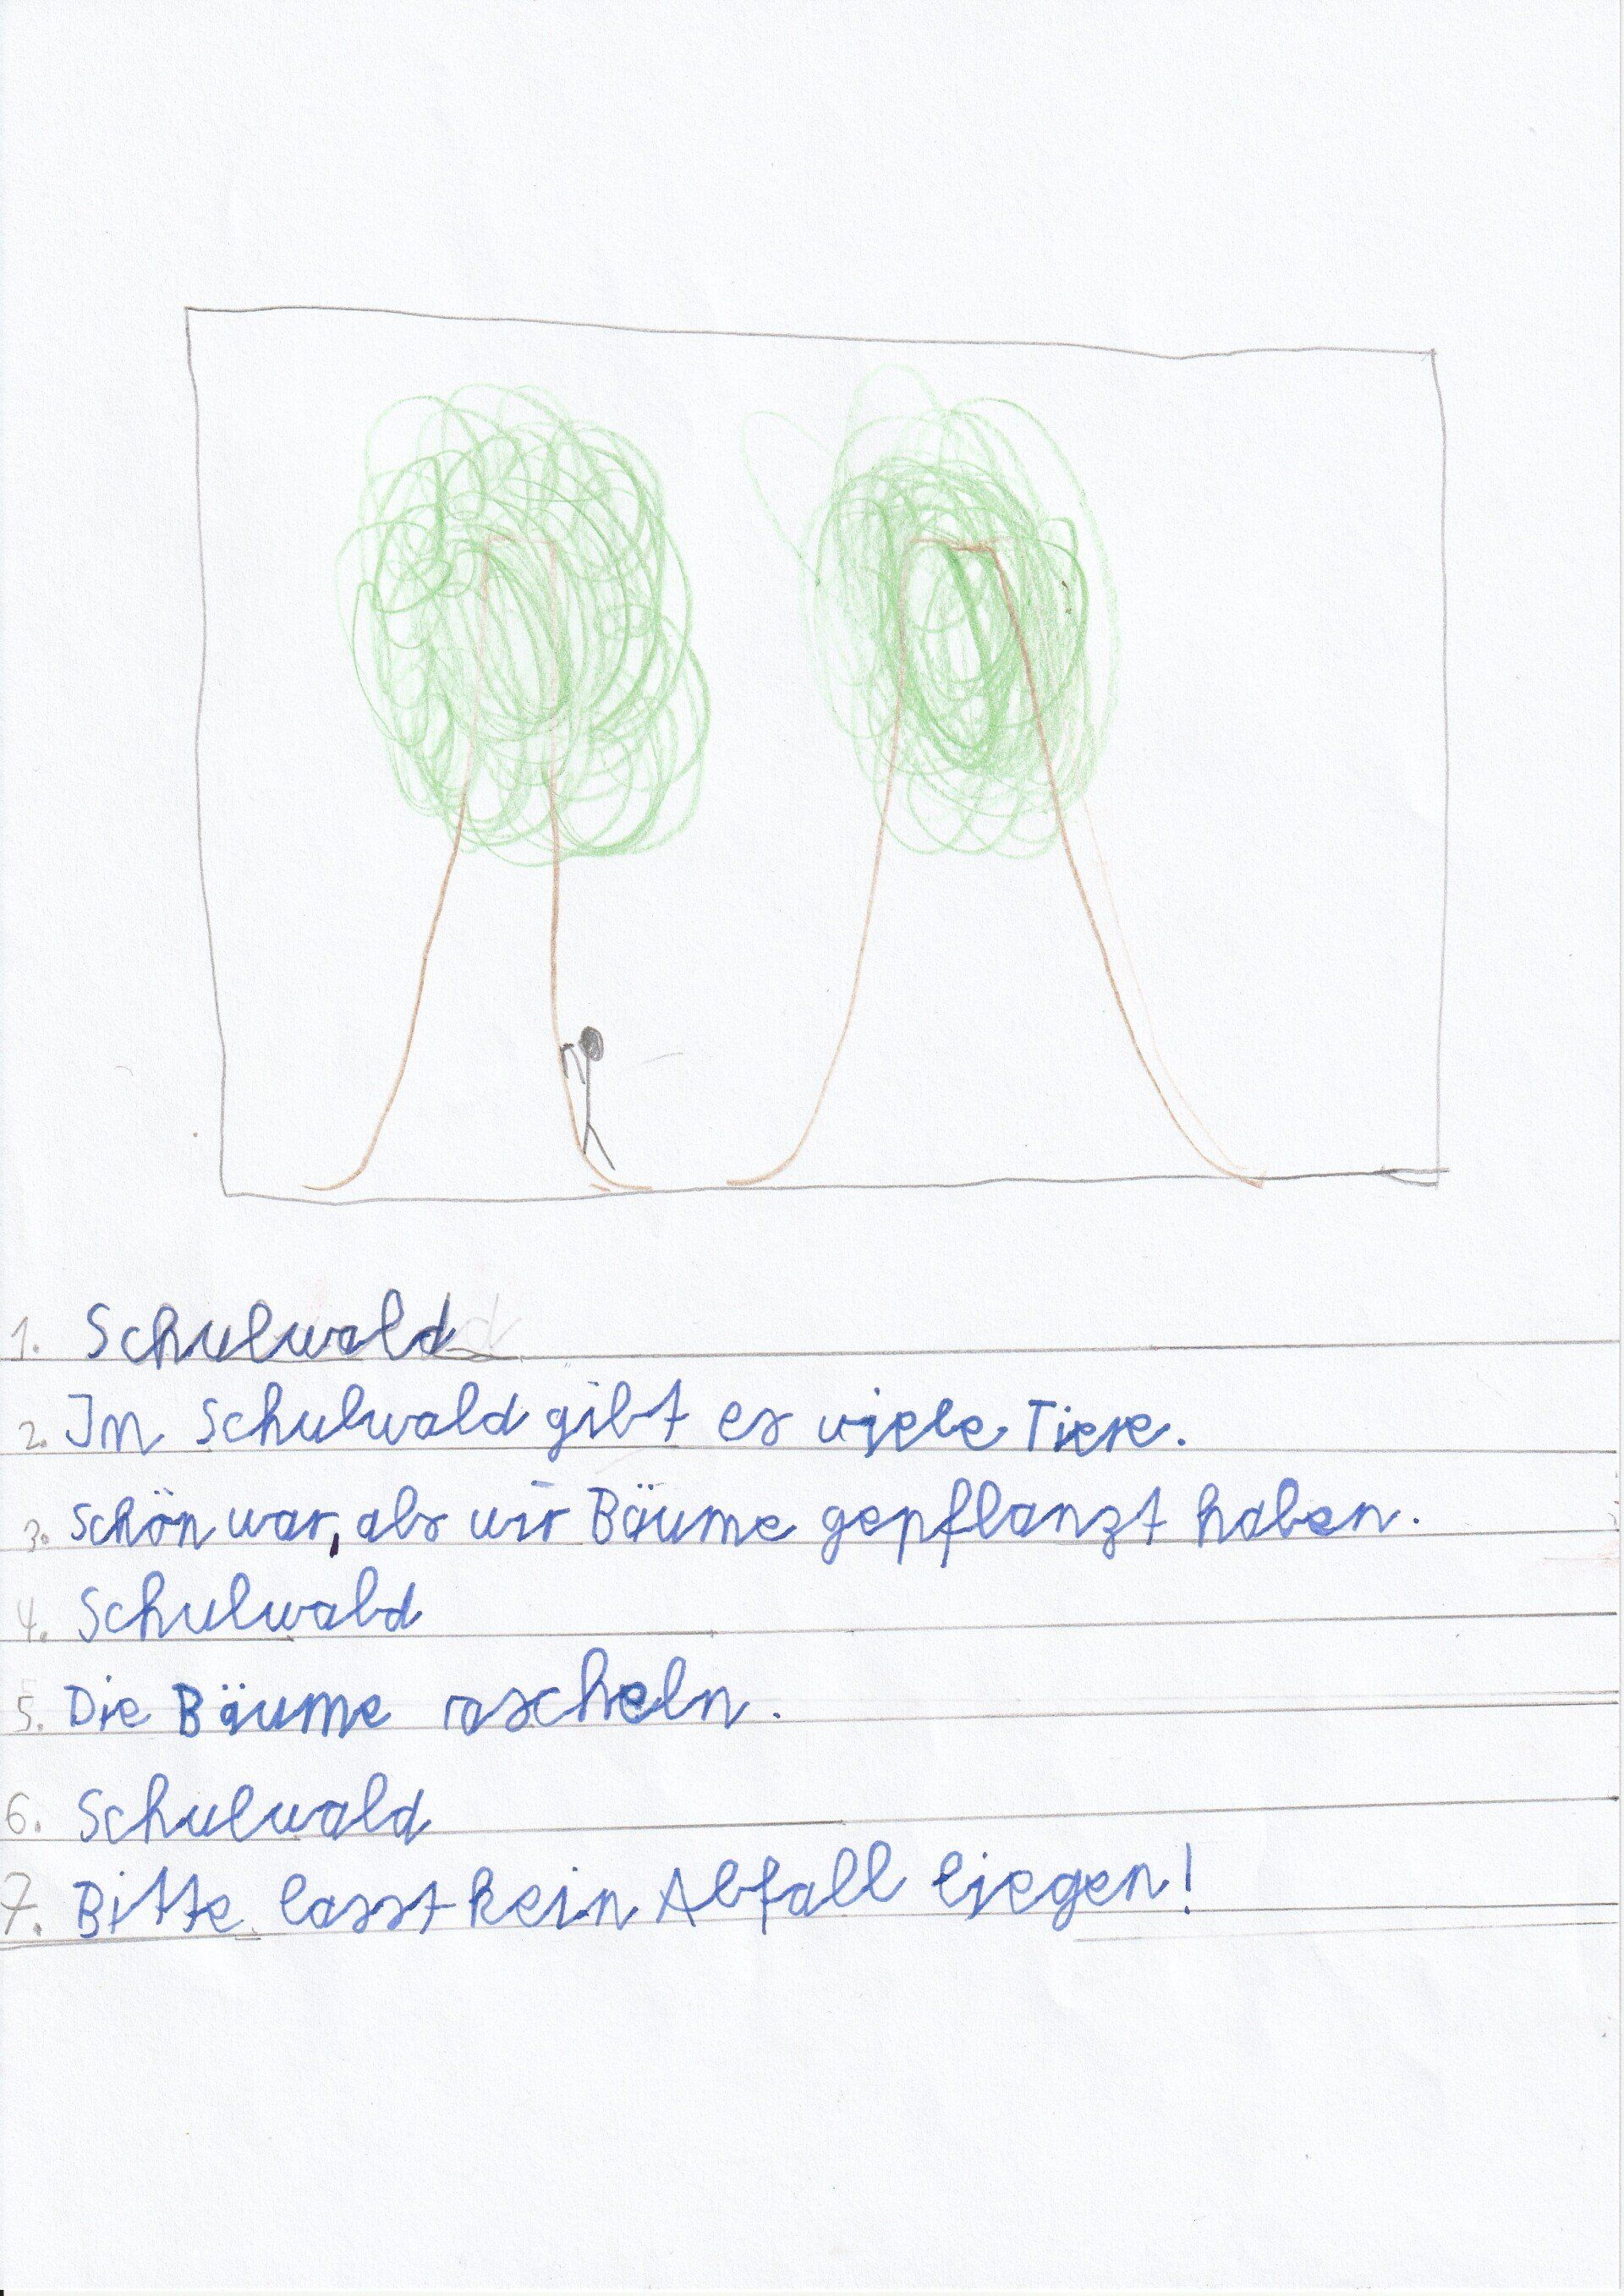 1. Schulwald
2. In Schulwald gibt es viele Tiere.
3. Schön war, als wir Bäume gepflanzt haben.
4. Schulwald
5. Die Bäume rascheln.
6. Schulwald
7. Bitte lasst kein Abfall liegen!